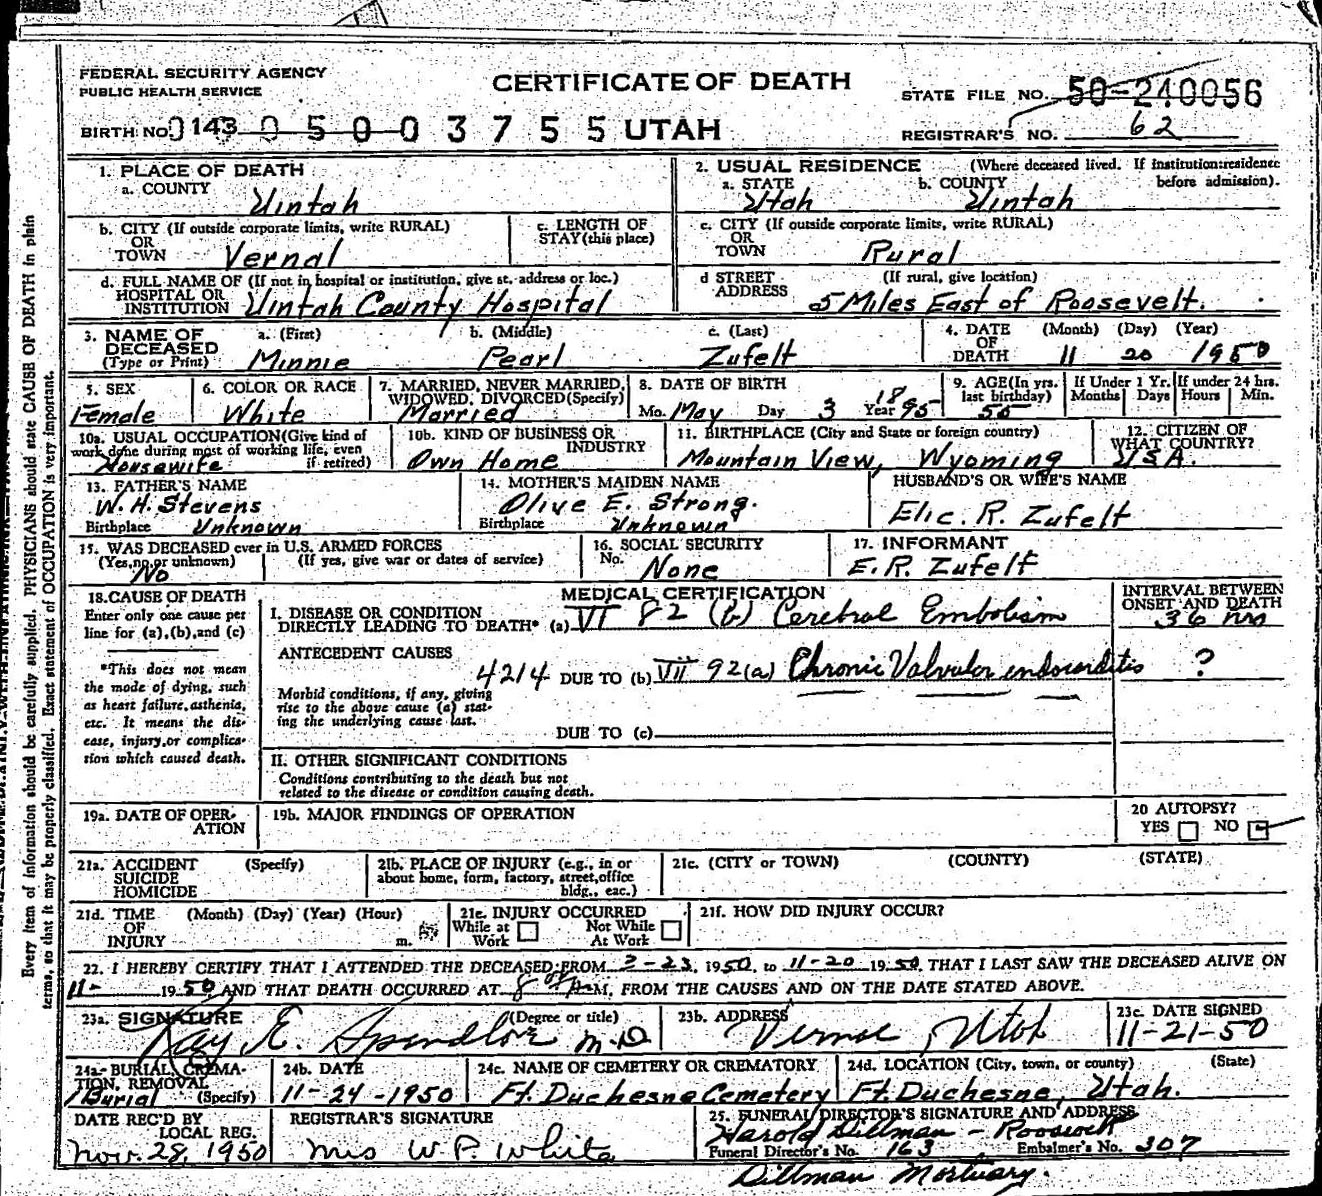 FEDERAL SECURITY AGENCY
PUBLIC HEALTH SERVICE
CERTIFICATE OF DEATH
STATE FILE NO. 50-240056
BIRTH NO. 0143 0 5 0 0 3 7 5 5 UTAH
REGISTRAR'S NO. 62
1. PLACE OF DEATH
a. COUNTY
Uintah
2. USUAL RESIDENCE (Where deceased lived. If institution:residence before admission).
a. STATE Utah b. COUNTY Uintah
b. CITY (If outside corporate limits, write RURAL)
OR
TOWN Vernal
c. LENGTH OF
STAY(this place)
c. CITY (If outside corporate limits, write RURAL)
OR
TOWN Rural
d. FULL NAME OF (If not in hospital or institution, give st. address or loc.)
HOSPITAL OR
INSTITUTION Uintah County Hospital
d STREET (If rural, give location)
ADDRESS 5 Miles East of Roosevelt.
3. NAME OF
DECEASED
(Type or Print)
a. (First) Minnie
b. (Middle) Pearl
c. (Last) Zufelt
4. DATE (Month) (Day) (Year)
OF
DEATH 11 20 1950
5. SEX
Female
6. COLOR OR RACE
White
7. MARRIED, NEVER MARRIED,
WIDOWED, DIVORCED(Specify)
Married
8. DATE OF BIRTH
Mo. May Day 3 Year 1895
9. AGE(In yrs.
last birthday)
55
If Under 1 Yr. If under 24 hrs.
Months Days Hours Min.
10a. USUAL OCCUPATION(Give kind of
work done during most of working life, even
if retired)
Housewife
10b. KIND OF BUSINESS OR
INDUSTRY
Own Home
11. BIRTHPLACE (City and State or foreign country)
Mountain View, Wyoming
12. CITIZEN OF
WHAT COUNTRY?
U.S.A.
13. FATHER'S NAME
W. H. Stevens
Birthplace Unknown
14. MOTHER'S MAIDEN NAME
Olive E. Strong.
Birthplace Unknown
HUSBAND'S OR WIFE'S NAME
Elic. R. Zufelt
15. WAS DECEASED ever in U.S. ARMED FORCES
(Yes,no,or unknown) (If yes, give war or dates of service)
No
16. SOCIAL SECURITY
No. None
17. INFORMANT
E.R. Zufelt
18.CAUSE OF DEATH
Enter only one cause per
line for (a),(b),and (c)
*This does not mean
the mode of dying, such
as heart failure,asthenia,
etc. It means the dis-
ease, injury,or complica-
tion which caused death.
MEDICAL CERTIFICATION
I. DISEASE OR CONDITION
DIRECTLY LEADING TO DEATH* (a) VI 82 (b) Cerebral Embolism
INTERVAL BETWEEN
ONSET AND DEATH
36 hrs
ANTECEDENT CAUSES
4214 DUE TO (b) VII 92(a) Chronic Valvular endocarditis ?
Morbid conditions, if any, giving
rise to the above cause (a) stat-
ing the underlying cause last.
DUE TO (c)
II. OTHER SIGNIFICANT CONDITIONS
Conditions contributing to the death but not
related to the disease or condition causing death.
19a. DATE OF OPER-
ATION
19b. MAJOR FINDINGS OF OPERATION
20 AUTOPSY?
YES NO
21a. ACCIDENT (Specify)
SUICIDE
HOMICIDE
21b. PLACE OF INJURY (e.g., in or
about home, form, factory, street,office
bldg., eac.)
21c. (CITY or TOWN) (COUNTY) (STATE)
21d. TIME (Month) (Day) (Year) (Hour)
OF
INJURY m.
21e. INJURY OCCURRED
While at Work Not While At Work
21f. HOW DID INJURY OCCUR?
22. I HEREBY CERTIFY THAT I ATTENDED THE DECEASED FROM 2-23, 1950, to 11-20 1950, THAT I LAST SAW THE DECEASED ALIVE ON
11- 1950 AND THAT DEATH OCCURRED AT 8 M, FROM THE CAUSES AND ON THE DATE STATED ABOVE.
23a. SIGNATURE (Degree or title)
Ray E. Spendlove M.D.
23b. ADDRESS
Vernal, Utah
23c. DATE SIGNED
11-21-50
24a- BURIAL, CREMA-
TION, REMOVAL
(Specify)
Burial
24b. DATE
11-24-1950
24c. NAME OF CEMETERY OR CREMATORY
Ft. Duchesne Cemetery
24d. LOCATION (City, town, or county) (State)
Ft. Duchesne, Utah.
DATE REC'D BY
LOCAL REG.
Nov. 28, 1950
REGISTRAR'S SIGNATURE
Mrs W. P. White
25. FUNERAL DIRECTOR'S SIGNATURE AND ADDRESS
Harold Dillman - Roosevelt
Funeral Director's No. 163 Embalmer's No. 307
Dillman Mortuary.
Every item of information should be carefully supplied. PHYSICIANS should state CAUSE OF DEATH in plain
terms, so that it may be properly classified. Exact statement of OCCUPATION is very important.